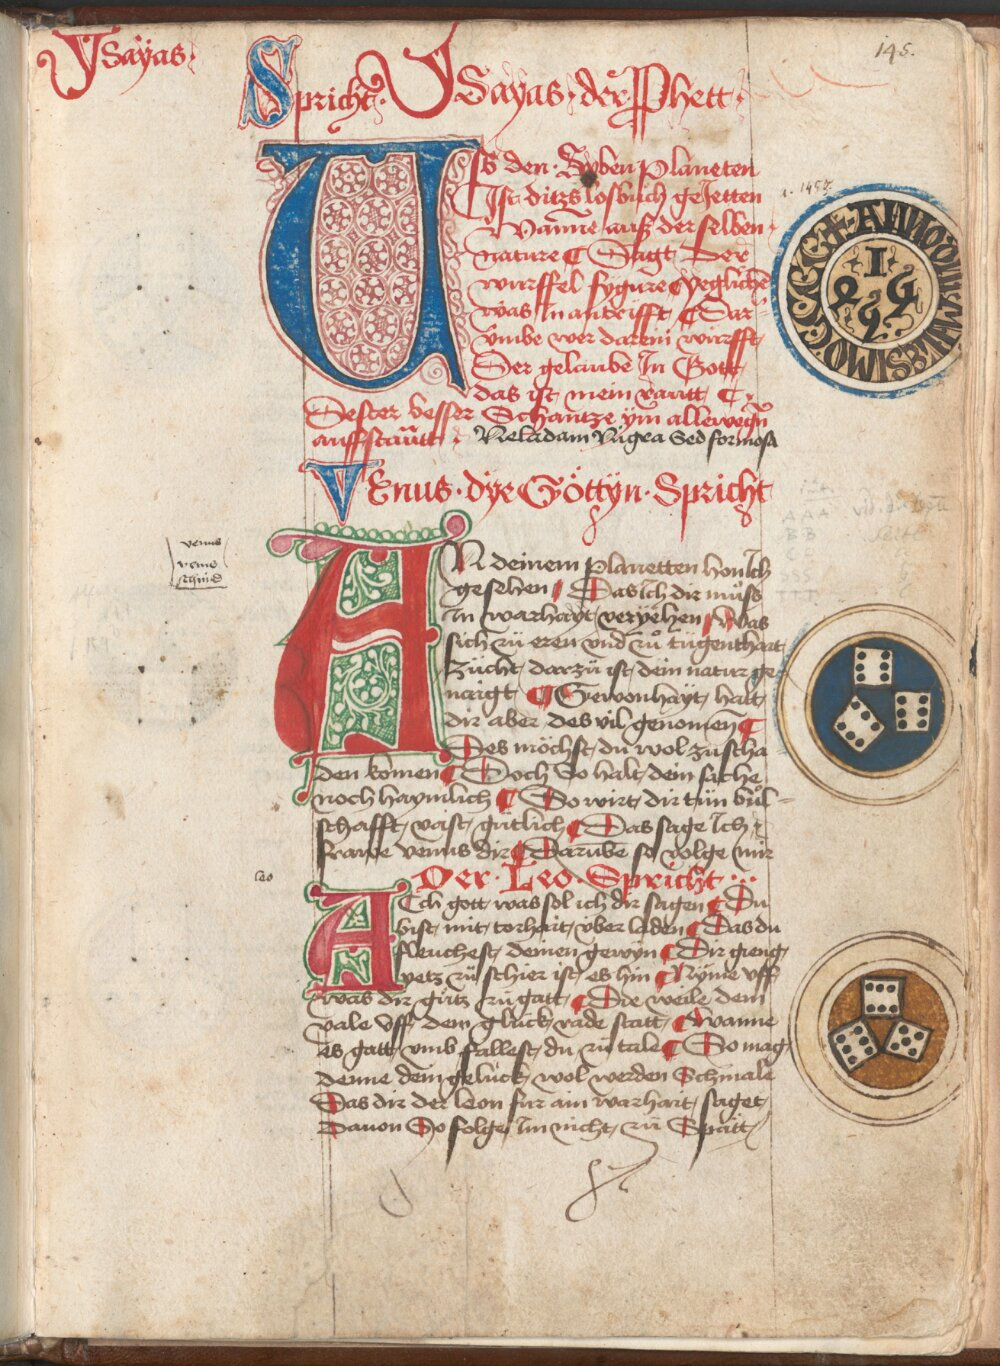 Ysayas
145.
Spricht Ysayas der Phett
Us den Syben planeten
Ist ditzs losbuch gesetten
Wanne auß der selben
nature Sagt Der
wurffel fygure yegliche
was In antrifft Dar
vmbe wer darein wirfft
Der gelaube In Gott
das ist mein
Dester besser Schantze ym allwegn
auff
a. 1457.
ANNO DOMINI MILLESIMO CCCC
Venus dye Göttyn Spricht
venus
An deinem planetten hon Ich
gesehen Das Ich dir muß
In warhayt veryehen Was
sich zü eren vnd zü tugenthait
Zücht darzü ist dein natur ge
naigt Gewonhayt hatt
dir aber des vil genomen
Des möchst du wol zu scha
den komen Doch So halt dein sache
noch haymlich So wirt dir tün bül
schafft vast gütlich Das sage Ich
frawe venus dir Darumbe so volge mir
leo
Der Leo Spricht
Ach gott was sol ich dir sagen Du
bist mit torhait vber laden Das du
fleuchest deinen gewyn Dir gieng
yetz zü schier ist es hin Nyme vff
was dir gütz zü gatt Die weile dein
vale vff dem glück rade statt Wanne
es gatt vmb fallest du zü tale So mag
denne dem gelück wol werden Schmale
Das dir der leon für ain warhait saget
Dauon So folge Im nicht zü Spätt